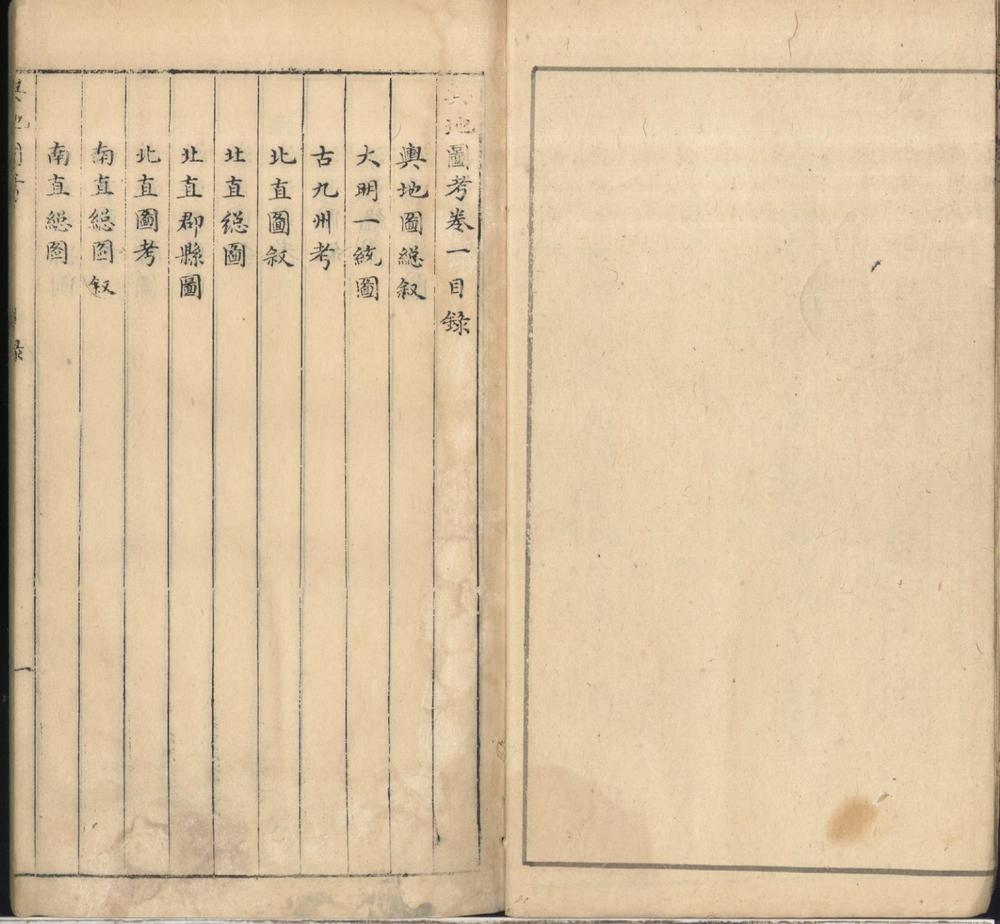 輿地圖考卷一目錄
輿地圖緫叙
大明一統圖
古九州考
北直圖叙
北直緫圖
北直郡縣圖
北直圖考
南直緫圖叙
南直緫圖